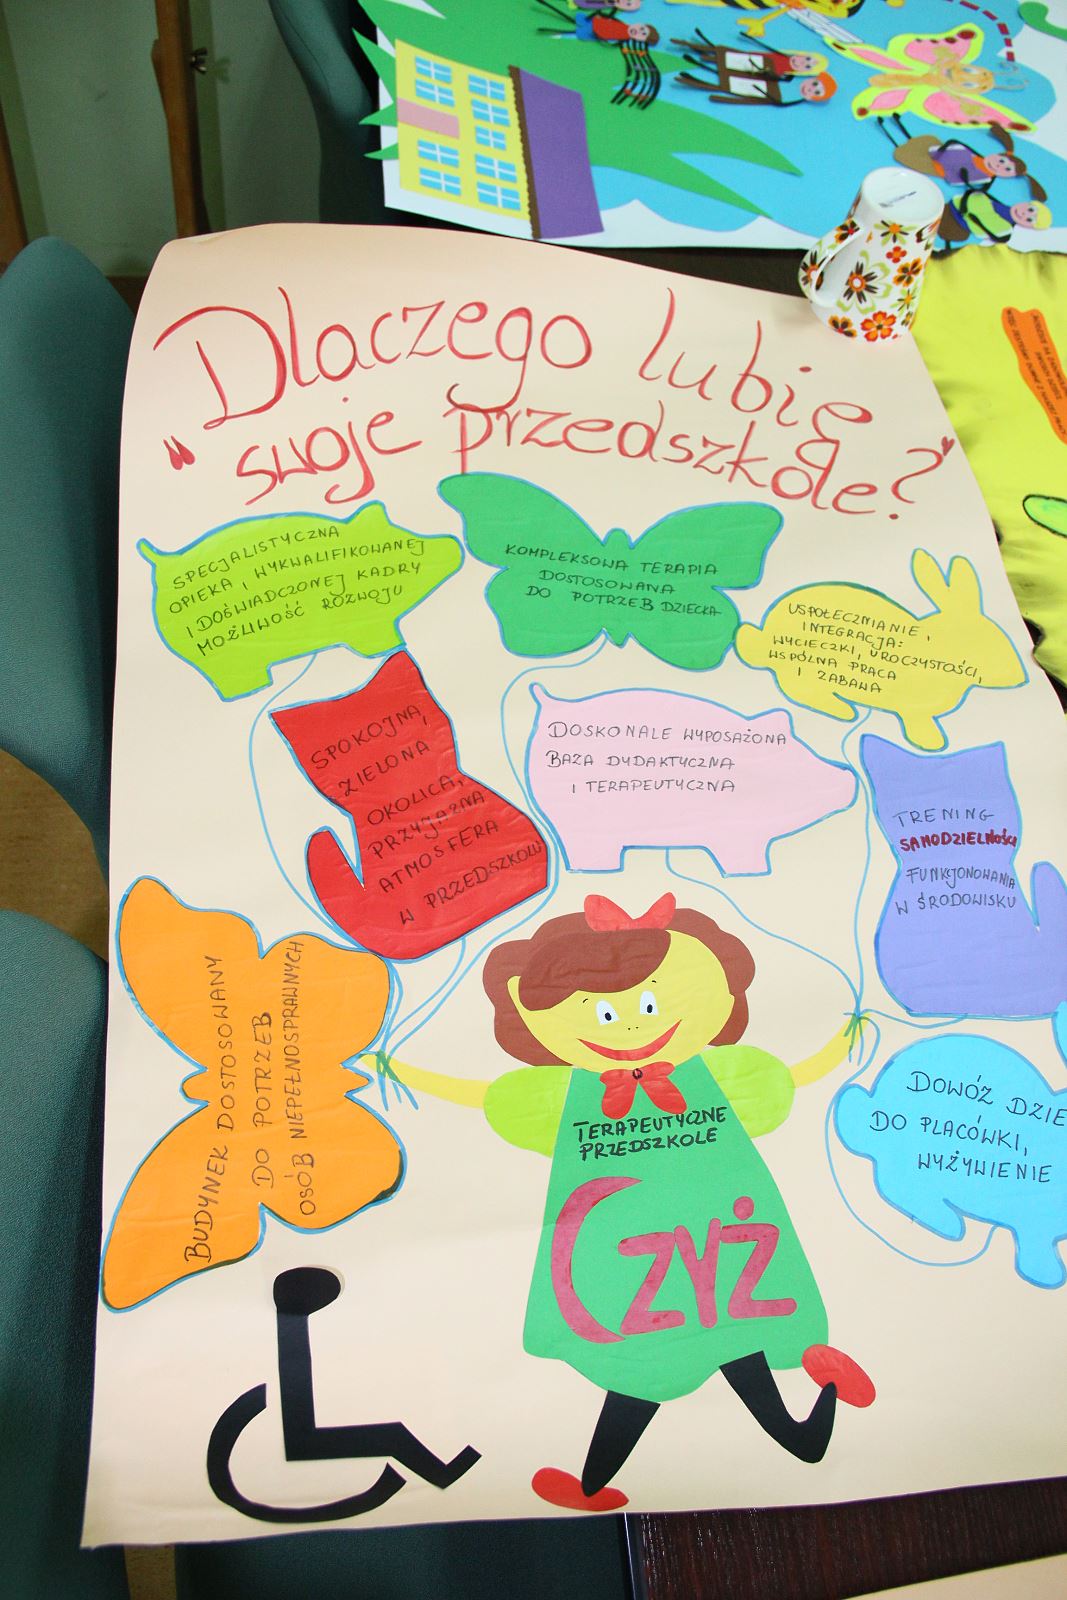 Dlaczego lubię
"swoje przedszkole?"
SPECJALISTYCZNA
OPIEKA, WYKWALIFIKOWANEJ
I DOŚWIADCZONEJ KADRY
MOŻLIWOŚĆ ROZWOJU
KOMPLEKSOWA TERAPIA
DOSTOSOWANA
DO POTRZEB DZIECKA
USPOŁECZNIANIE,
INTEGRACJA:
WYCIECZKI, UROCZYSTOŚCI,
WSPÓLNA PRACA
I ZABAWA
SPOKOJNA,
ZIELONA
OKOLICA,
PRZYJAZNA
ATMOSFERA
W PRZEDSZKOLU
DOSKONALE WYPOSAŻONA
BAZA DYDAKTYCZNA
I TERAPEUTYCZNA
TRENING
SAMODZIELNOŚCI
FUNKJONOWANIA
W ŚRODOWISKU
BUDYNEK DOSTOSOWANY
DO POTRZEB
OSÓB NIEPEŁNOSPRAWNYCH
DOWÓZ DZIE
DO PLACÓWKI,
WYŻYWIENIE
TERAPEUTYCZNE
PRZEDSZKOLE
CZYŻ